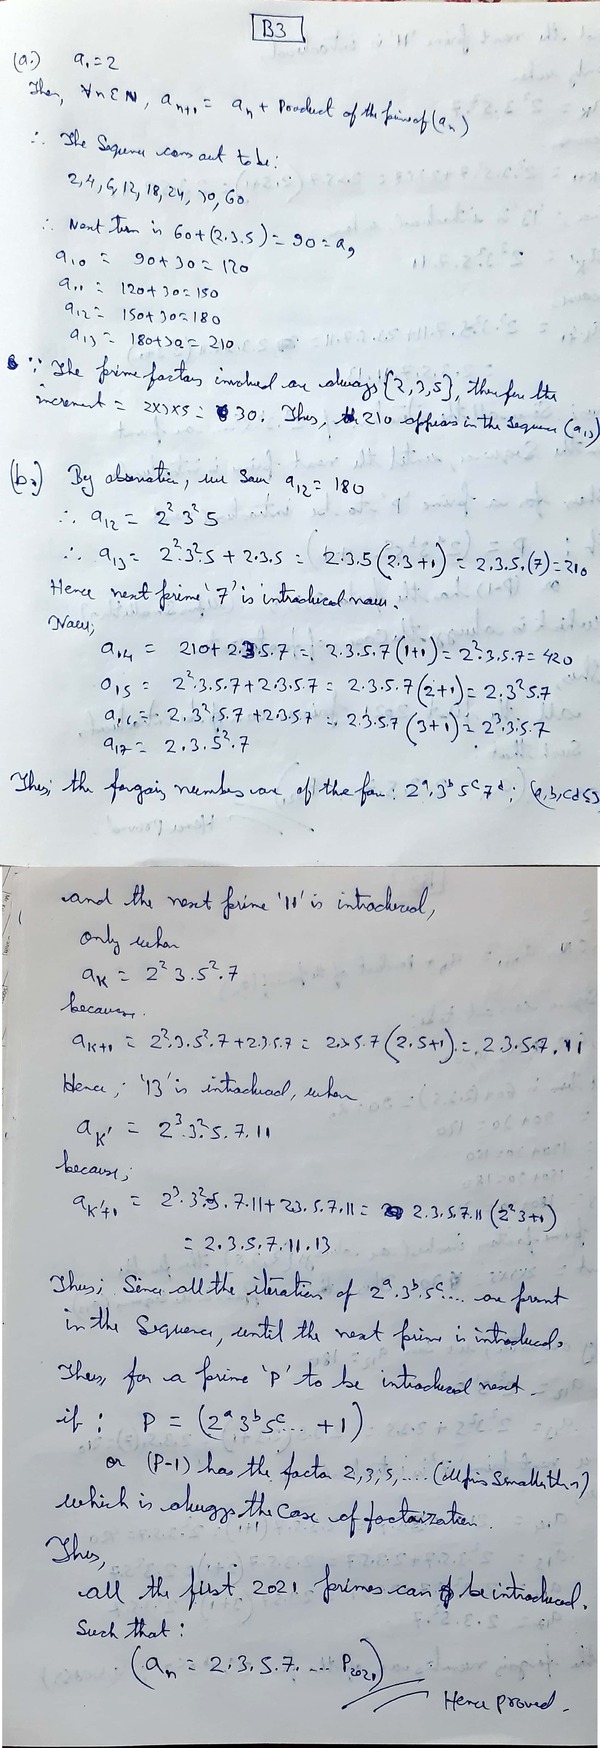 B3
(a.) a₁=2
Then, ∀n∈N, aₙ₊₁ = aₙ + Product of the primes of (aₙ)
∴ The Sequence comes out to be:
2,4,6,12,18,24,30,60
∴ Next term is 60+(2.3.5)=90=a₉
a₁₀ = 90+30=120
a₁₁ = 120+30=150
a₁₂ = 150+30=180
a₁₃ = 180+30=210
∵ The prime factors involved are always {2,3,5}, therefore the
increment = 2×3×5 = 30. Thus, 210 appears in the sequence (a₁₃)
(b.) By observation, we saw a₁₂=180
∴ a₁₂= 2² 3² 5
∴ a₁₃= 2².3².5 + 2.3.5 = 2.3.5(2.3+1) = 2.3.5.(7)=210
Hence next prime '7' is introduced now.
Now;
a₁₄ = 210+2.3.5.7 = 2.3.5.7(1+1)=2².3.5.7=420
a₁₅ = 2².3.5.7+2.3.5.7 = 2.3.5.7(2+1)=2.3².5.7
a₁₆= 2.3².5.7+2.3.5.7 = 2.3.5.7(3+1)=2³.3.5.7
a₁₇= 2.3.5².7
Thus, the numbers are of the form: 2ᵃ.3ᵇ 5ᶜ 7ᵈ;
and the next prime '11' is introduced,
only when
aₖ = 2² 3.5².7
because.
aₖ₊₁ = 2².3.5².7+2.3.5.7 = 2.3.5.7(2.5+1)=2.3.5.7.11
Hence, '13' is introduced, when
aₖ' = 2³.3².5.7.11
because;
aₖ'₊₁ = 2³.3².5.7.11+2.3.5.7.11= 2.3.5.7.11(2²3+1)
= 2.3.5.7.11.13
Thus; Since all the iteration of 2ᵃ.3ᵇ.5ᶜ.... are present
in the Sequence, until the next prime is introduced.
Thus, for a prime 'P' to be introduced next.
if : P = (2ᵃ 3ᵇ 5ᶜ... +1)
or (P-1) has the factor 2,3,5,....
which is always the case of factorization.
Thus,
all the first 2021 primes can be introduced.
Such that:
(aₙ = 2.3.5.7.... P₂₀₂₁)
Hence proved.